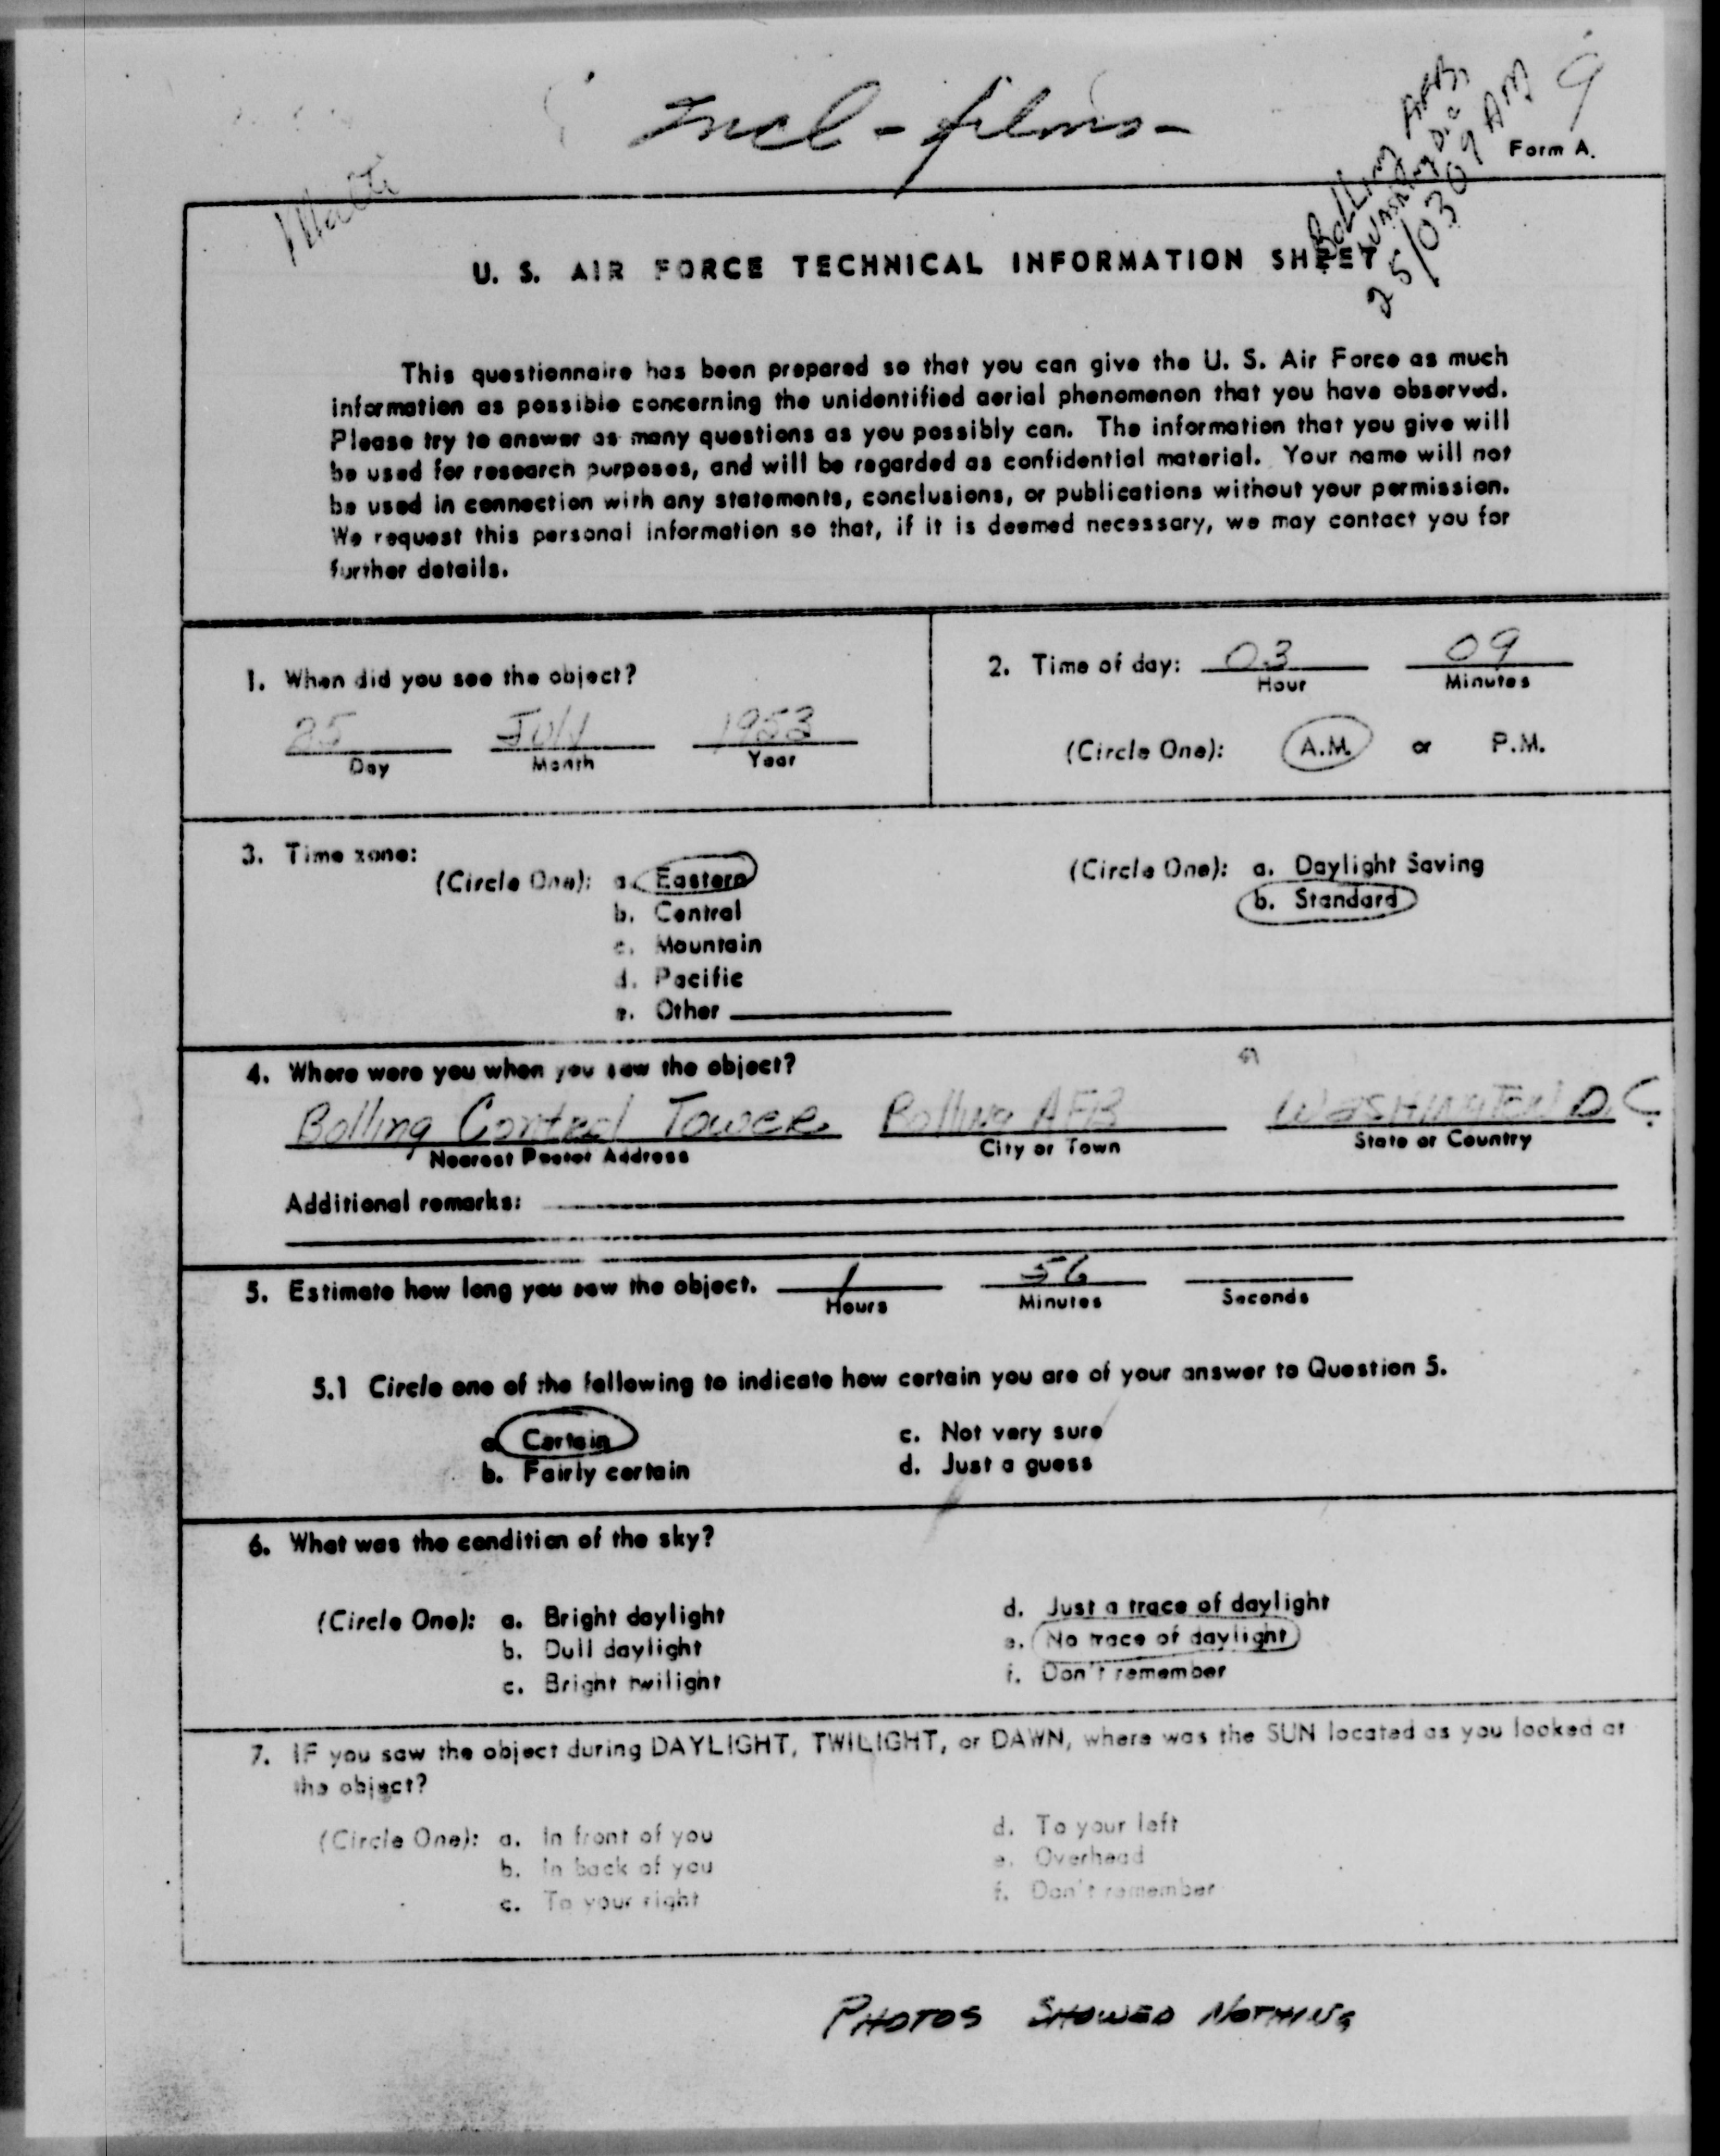 Incl - films -
Bolling AFB,
Washing D.C.
25/0309 AM
Form A.
U. S. AIR FORCE TECHNICAL INFORMATION SHEET
This questionnaire has been prepared so that you can give the U. S. Air Force as much
information as possible concerning the unidentified aerial phenomenon that you have observed.
Please try to answer as many questions as you possibly can. The information that you give will
be used for research purposes, and will be regarded as confidential material. Your name will not
be used in connection with any statements, conclusions, or publications without your permission.
We request this personal information so that, if it is deemed necessary, we may contact you for
further details.
1. When did you see the object?
25 July 1953
Day Month Year
2. Time of day: 03 09
Hour Minutes
(Circle One): A.M. or P.M.
3. Time zone:
(Circle One): a. Eastern
b. Central
c. Mountain
d. Pacific
e. Other
(Circle One): a. Daylight Saving
b. Standard
4. Where were you when you saw the object?
Bolling Control Tower Bolling AFB WASHINGTON D.C.
Nearest Postal Address City or Town State or Country
Additional remarks:
5. Estimate how long you saw the object. 1 56
Hours Minutes Seconds
5.1 Circle one of the following to indicate how certain you are of your answer to Question 5.
a. Certain c. Not very sure
b. Fairly certain d. Just a guess
6. What was the condition of the sky?
(Circle One): a. Bright daylight d. Just a trace of daylight
b. Dull daylight e. No trace of daylight
c. Bright twilight f. Don't remember
7. IF you saw the object during DAYLIGHT, TWILIGHT, or DAWN, where was the SUN located as you looked at
the object?
(Circle One): a. In front of you d. To your left
b. In back of you e. Overhead
c. To your right f. Don't remember
PHOTOS SHOWED NOTHING